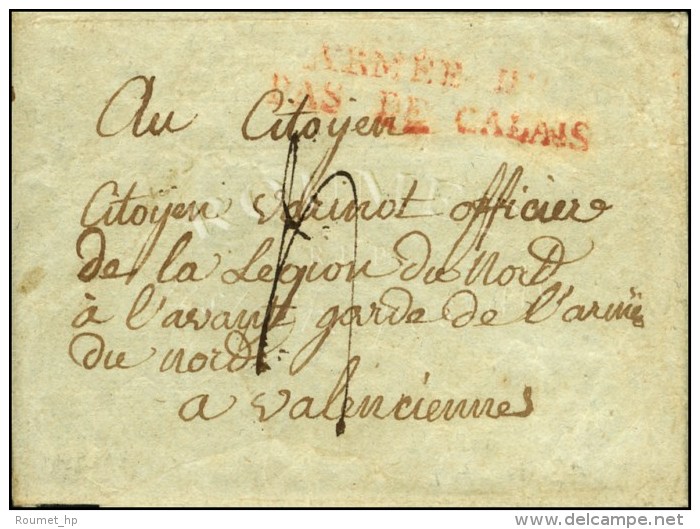 ARMÉE D
PAS DE CALAIS
Au Citoyen
Citoyen officier
de la Légion du Nord
à l'avant garde de l'armée
du Nord
a Valenciennes
Roumet_hp
delcampe.net